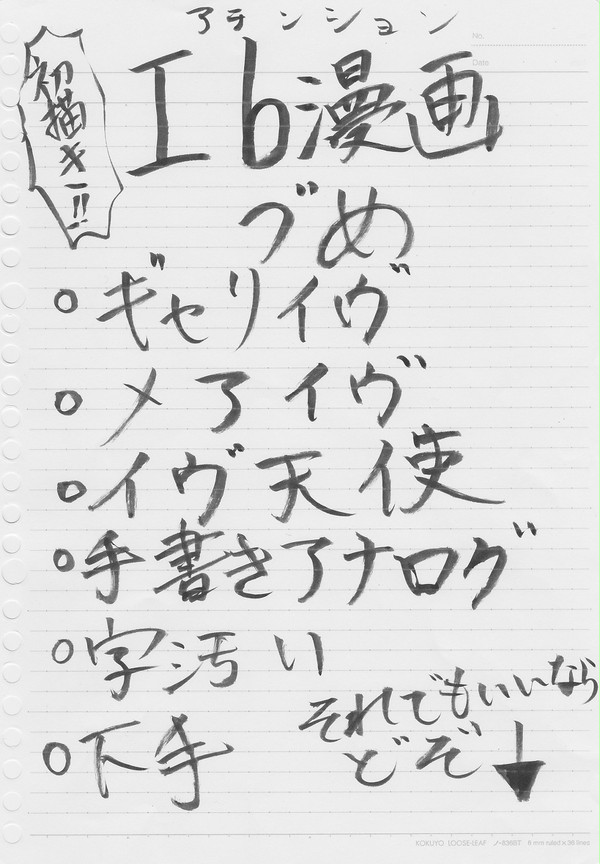 アテンション
No.
Date
初描き!!
Ib漫画
づめ
○ギャリイヴ
○メアイヴ
○イヴ天使
○手書きアナログ
○字汚い
○下手
それでもいいなら
どぞ↓
KOKUYO LOOSE-LEAF ノ-836BT 6 mm ruled×36 lines